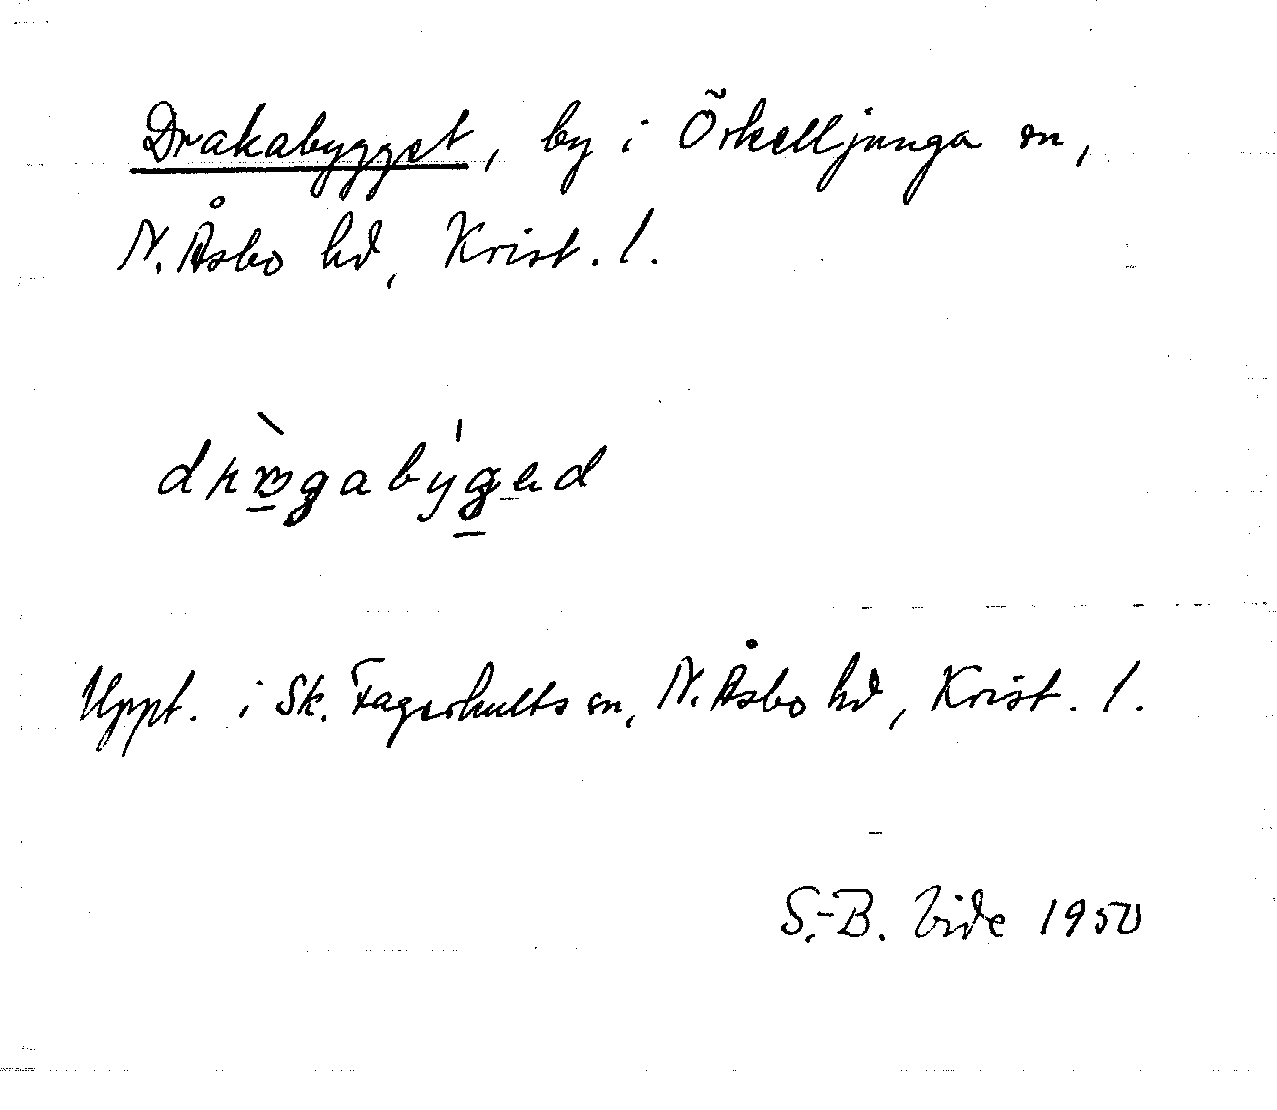 Drakabygget, by i Örkelljunga sn,
N. Åsbo hd, Krist. l.
Uppt. i Sk. Fagerhults sn, N. Åsbo hd, Krist. l.
S.-B. Vide 1950